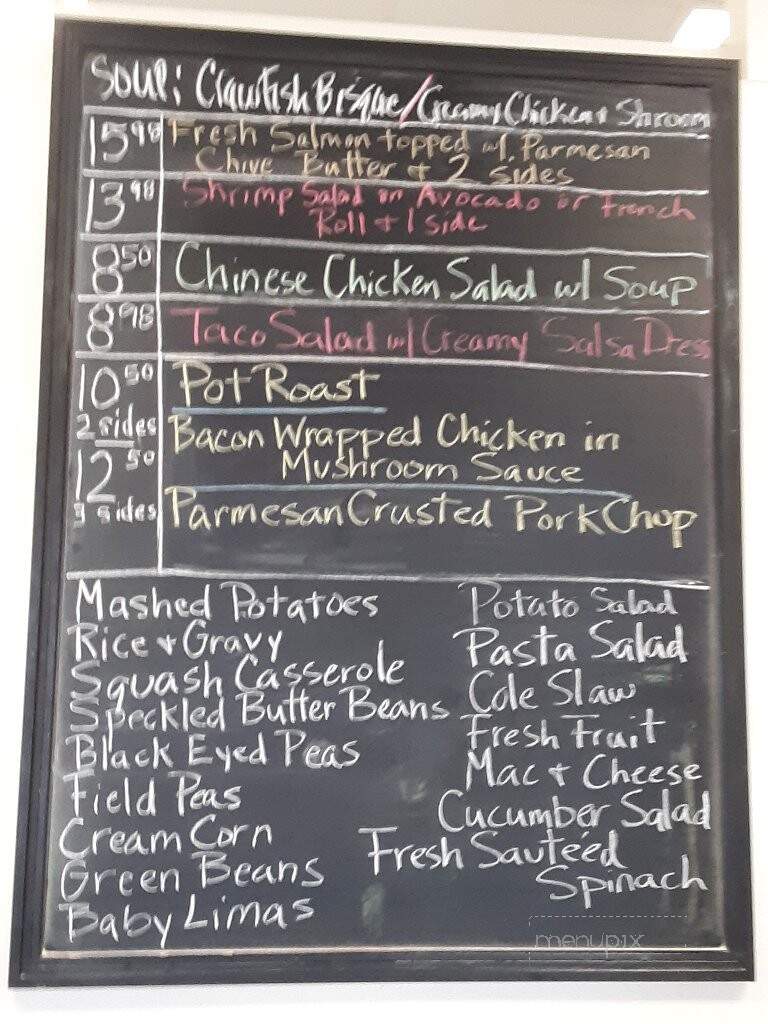 Soup: Crawfish Bisque/Creamy Chicken + Shroom
15.98 Fresh Salmon topped w/ Parmesan
Chive Butter + 2 sides
13.98 Shrimp Salad on Avocado or French
Roll + 1 side
8.50 Chinese Chicken Salad w/ Soup
8.98 Taco Salad w/ Creamy Salsa Dress
10.50 Pot Roast
2 sides Bacon Wrapped Chicken in
12.50 Mushroom Sauce
3 sides Parmesan Crusted Pork Chop
Mashed Potatoes
Rice + Gravy
Squash Casserole
Speckled Butter Beans
Black Eyed Peas
Field Peas
Cream Corn
Green Beans
Baby Limas
Potato Salad
Pasta Salad
Cole Slaw
Fresh Fruit
Mac + Cheese
Cucumber Salad
Fresh Sauteéd
Spinach
menupix